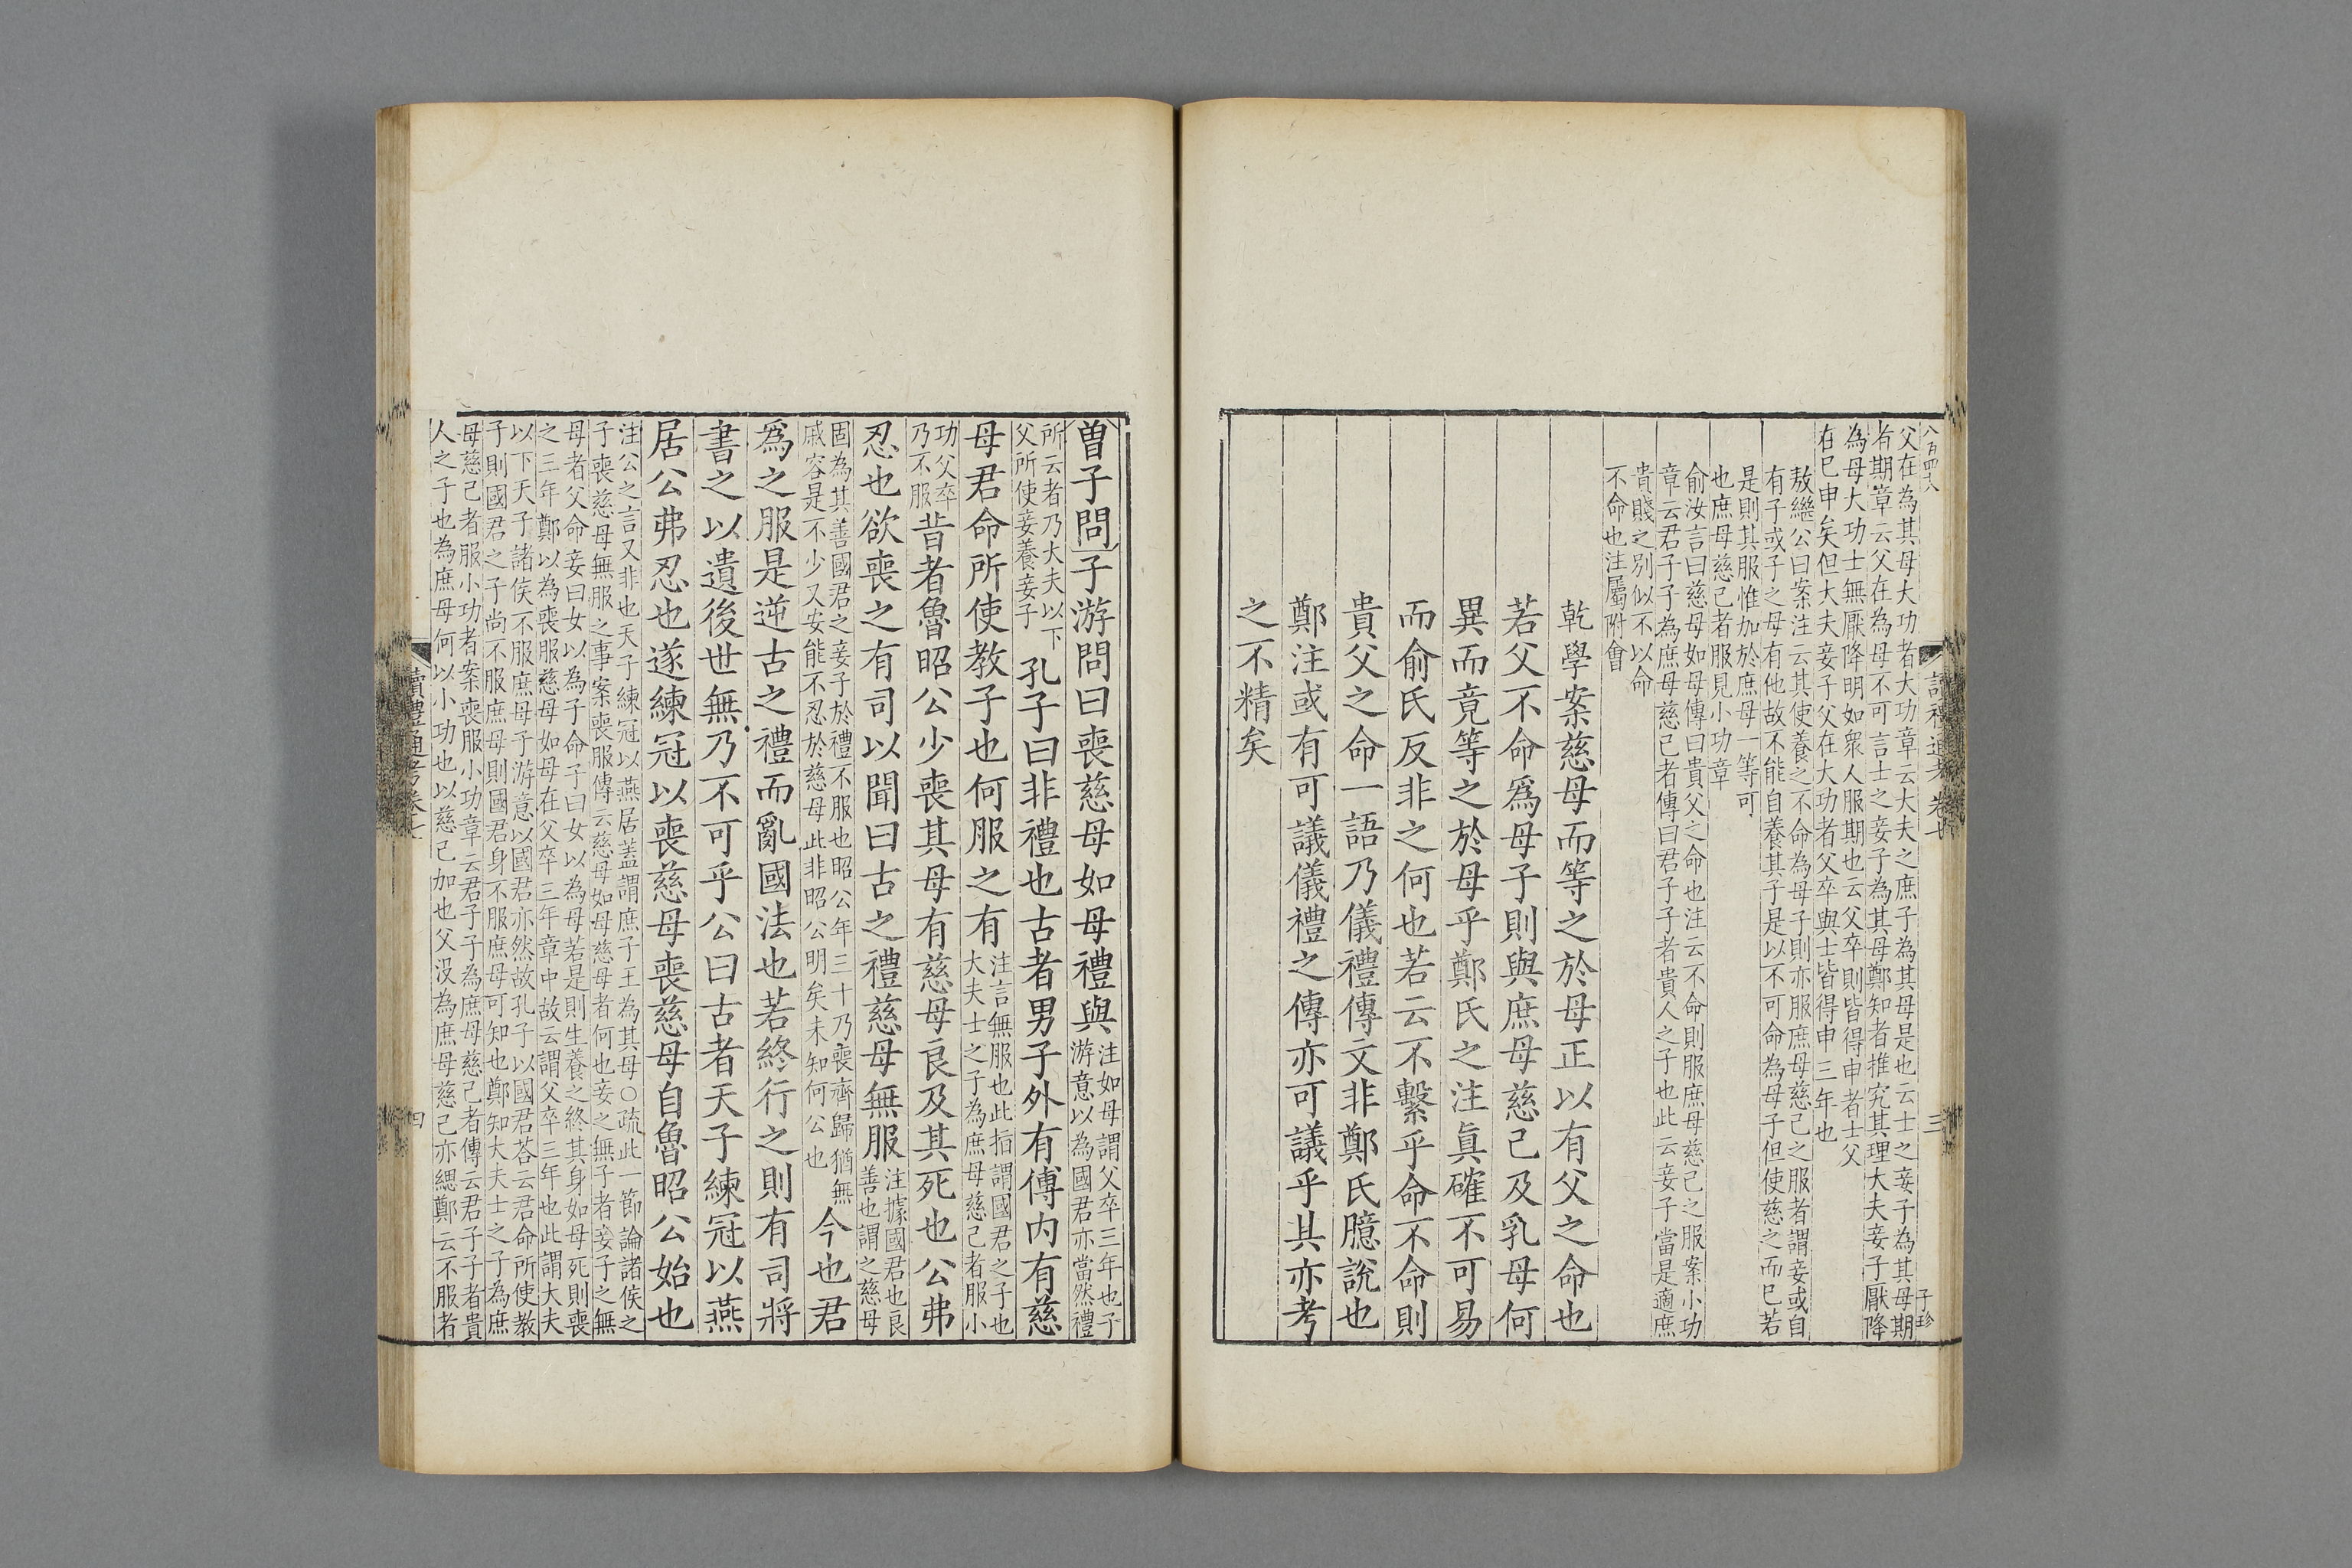 八百四十八
父在為其母大功者大功章云大夫之庶子為其母是也云士之妾子為其母期
者期章云父在為母不可言士之妾子為其母鄭知者推究其理大夫妾子厭降
為母大功士無厭降明如衆人服期也云父卒則皆得申者士父
在已申矣但大夫妾子父在大功者父卒與士皆得申三年也
敖繼公曰案注云其使養之不命為母子則亦服庶母慈己之服者謂妾或自
有子或子之母有他故不能自養其子是以不可命為母子但使慈之而已若
是則其服惟加於庶母一等可
也庶母慈己者服見小功章
俞汝言曰慈母如母傳曰貴父之命也注云不命則服庶母慈己之服案小功
章云君子子為庶母慈己者傳曰君子子者貴人之子也此云妾子當是適庶
貴賤之別似不以命
不命也注屬附會
乾學案慈母而等之於母正以有父之命也
若父不命爲母子則與庶母慈己及乳母何
異而竟等之於母乎鄭氏之注眞確不可易
而俞氏反非之何也若云不繫乎命不命則
貴父之命一語乃儀禮傳文非鄭氏臆說也
鄭注或有可議儀禮之傳亦可議乎其亦考
之不精矣
讀禮通考卷七
三
子珍
曾子問子游問曰喪慈母如母禮與
注如母謂父卒三年也子
游意以為國君亦當然禮
所云者乃大夫以下
父所使妾養妾子
孔子曰非禮也古者男子外有傅內有慈
母君命所使教子也何服之有
注言無服也此指謂國君之子也
大夫士之子為庶母慈己者服小
功父卒
乃不服
昔者魯昭公少喪其母有慈母良及其死也公弗
忍也欲喪之有司以聞曰古之禮慈母無服
注據國君也良
善也謂之慈母
固為其善國君之妾子於禮不服也昭公年三十乃喪齊歸猶無
戚容是不少又安能不忍於慈母此非昭公明矣未知何公也
今也君
爲之服是逆古之禮而亂國法也若終行之則有司將
書之以遺後世無乃不可乎公曰古者天子練冠以燕
居公弗忍也遂練冠以喪慈母喪慈母自魯昭公始也
注公之言又非也天子練冠以燕居蓋謂庶子王為其母○疏此一節論諸侯之
子喪慈母無服之事案喪服傳云慈母如母慈母者何也妾之無子者妾子之無
母者父命妾曰女以為子命子曰女以為母若是則生養之終其身如母死則喪
之三年鄭以為喪服慈母如母在父卒三年章中故云謂父卒三年也此謂大夫
以下天子諸侯不服庶母子游意以國君亦然故孔子以國君荅云君命所使教
子則國君之子尚不服庶母則國君身不服庶母可知也鄭知大夫士之子為庶
母慈己者服小功者案喪服小功章云君子子為庶母慈己者傳云君子子者貴
人之子也為庶母何以小功也以慈己加也父沒為庶母慈己亦緦鄭云不服者
讀禮通考卷七
四